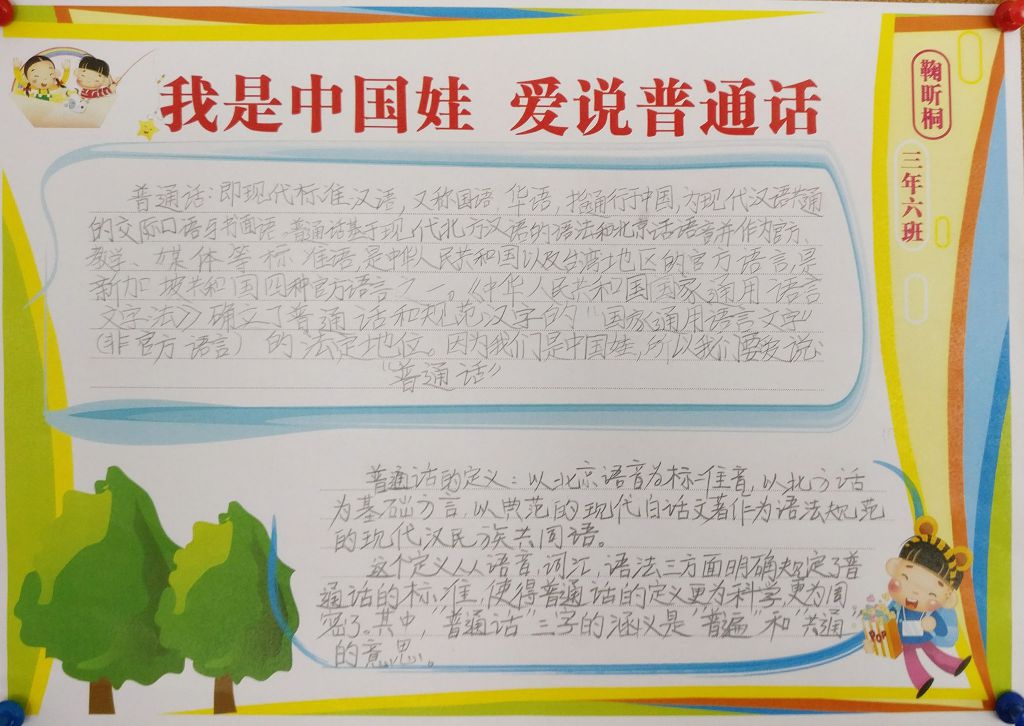 我是中国娃 爱说普通话
鞠昕桐
三年六班
普通话：即现代标准汉语，又称国语，华语，指通行于中国，为现代汉语共通
的交际口语与书面语。普通话基于现代北方汉语的语法和北京话语音并作为官方、
教学、媒体等标准语，是中华人民共和国以及台湾地区的官方语言，是
新加坡共和国四种官方语言之一。《中华人民共和国国家通用语言
文字法》确立了普通话和规范汉字的“国家通用语言文字”
（非官方语言）的法定地位。因为我们是中国娃，所以我们要爱说：
“普通话”
普通话的定义：以北京语音为标准音，以北方话
为基础方言，以典范的现代白话文著作为语法规范
的现代汉民族共同语。
这个定义从语音，词汇，语法三方面明确规定了普
通话的标准，使得普通话的定义更为科学，更为周
密了。其中，“普通话”三字的涵义是“普遍”和“共通”
的意思。
POP